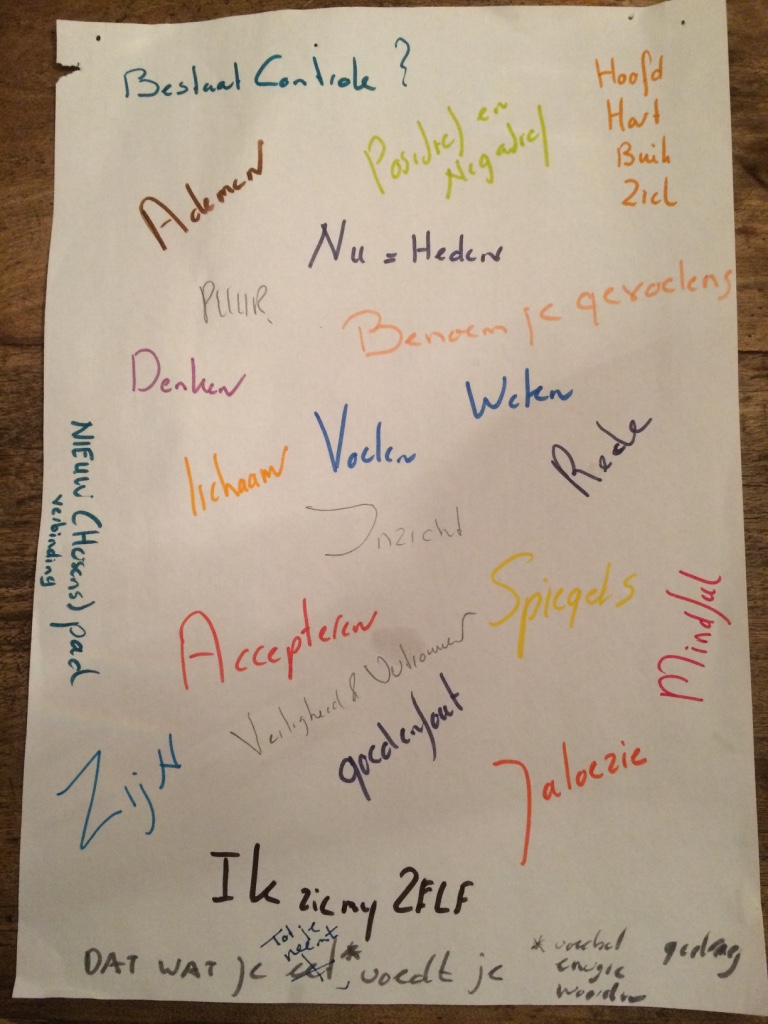 Bestaat Controle?
Hoofd
Hart
Buik
Ziel
Positief en
Negatief
Ademen
Nu = Heden
PUUR
Benoem je gevoelens
Denken
Weten
Voelen
lichaam
Rede
NIEUW (Hersens) pad
verbinding
Inzicht
Spiegels
Mindful
Accepteren
Veiligheid & Vertrouwen
goedenfout
ZijN
Jaloezie
Ik zie my ZELF
Tot je
neemt
DAT WAT je eet*, voedt je
* voedsel
energie
woorden
gedrag